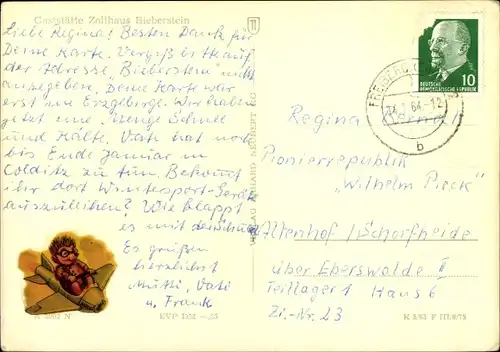 Gaststätte Zollhaus Bieberstein
Liebe Regina! Besten Dank für
Deine Karte. Vergiß bitte auf
der Adresse „Bieberstein" nicht
anzugeben. Deine Karte war
erst im Erzgebirge. Wir haben
jetzt eine Menge Schnee
und Kälte. Vati hat noch
bis Ende Januar in
Colditz zu tun. Bekommt
ihr dort Wintersport-Geräte
auszuleihen? Wie klappt
es mit der Schule
Es grüßen
herzlichst
Mutti, Vati
u. Frank
EVP DM
11
VERLAG ERHARD NEUBERT KG
DEUTSCHE
DEMOKRATISCHE REPUBLIK
10
FREIBERG
64-12
b
Regina
Pionierrepublik
„Wilhelm Pieck"
Altenhof / Schorfheide
über Eberswalde II
Teillager I Haus 6
Zi.-Nr. 23